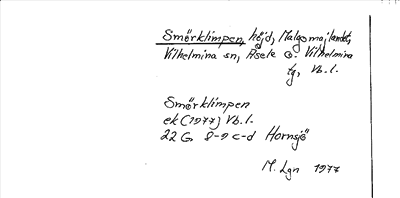 Smörklimpen, höjd, Malgomajlandet,
Vilhelmina sn, Åsele o. Vilhelmina
tg, Vb. l.
Smörklimpen
ek (1977) Vb. l.
22 G 8-9 c-d Hornsjö
M. Lgn 1977